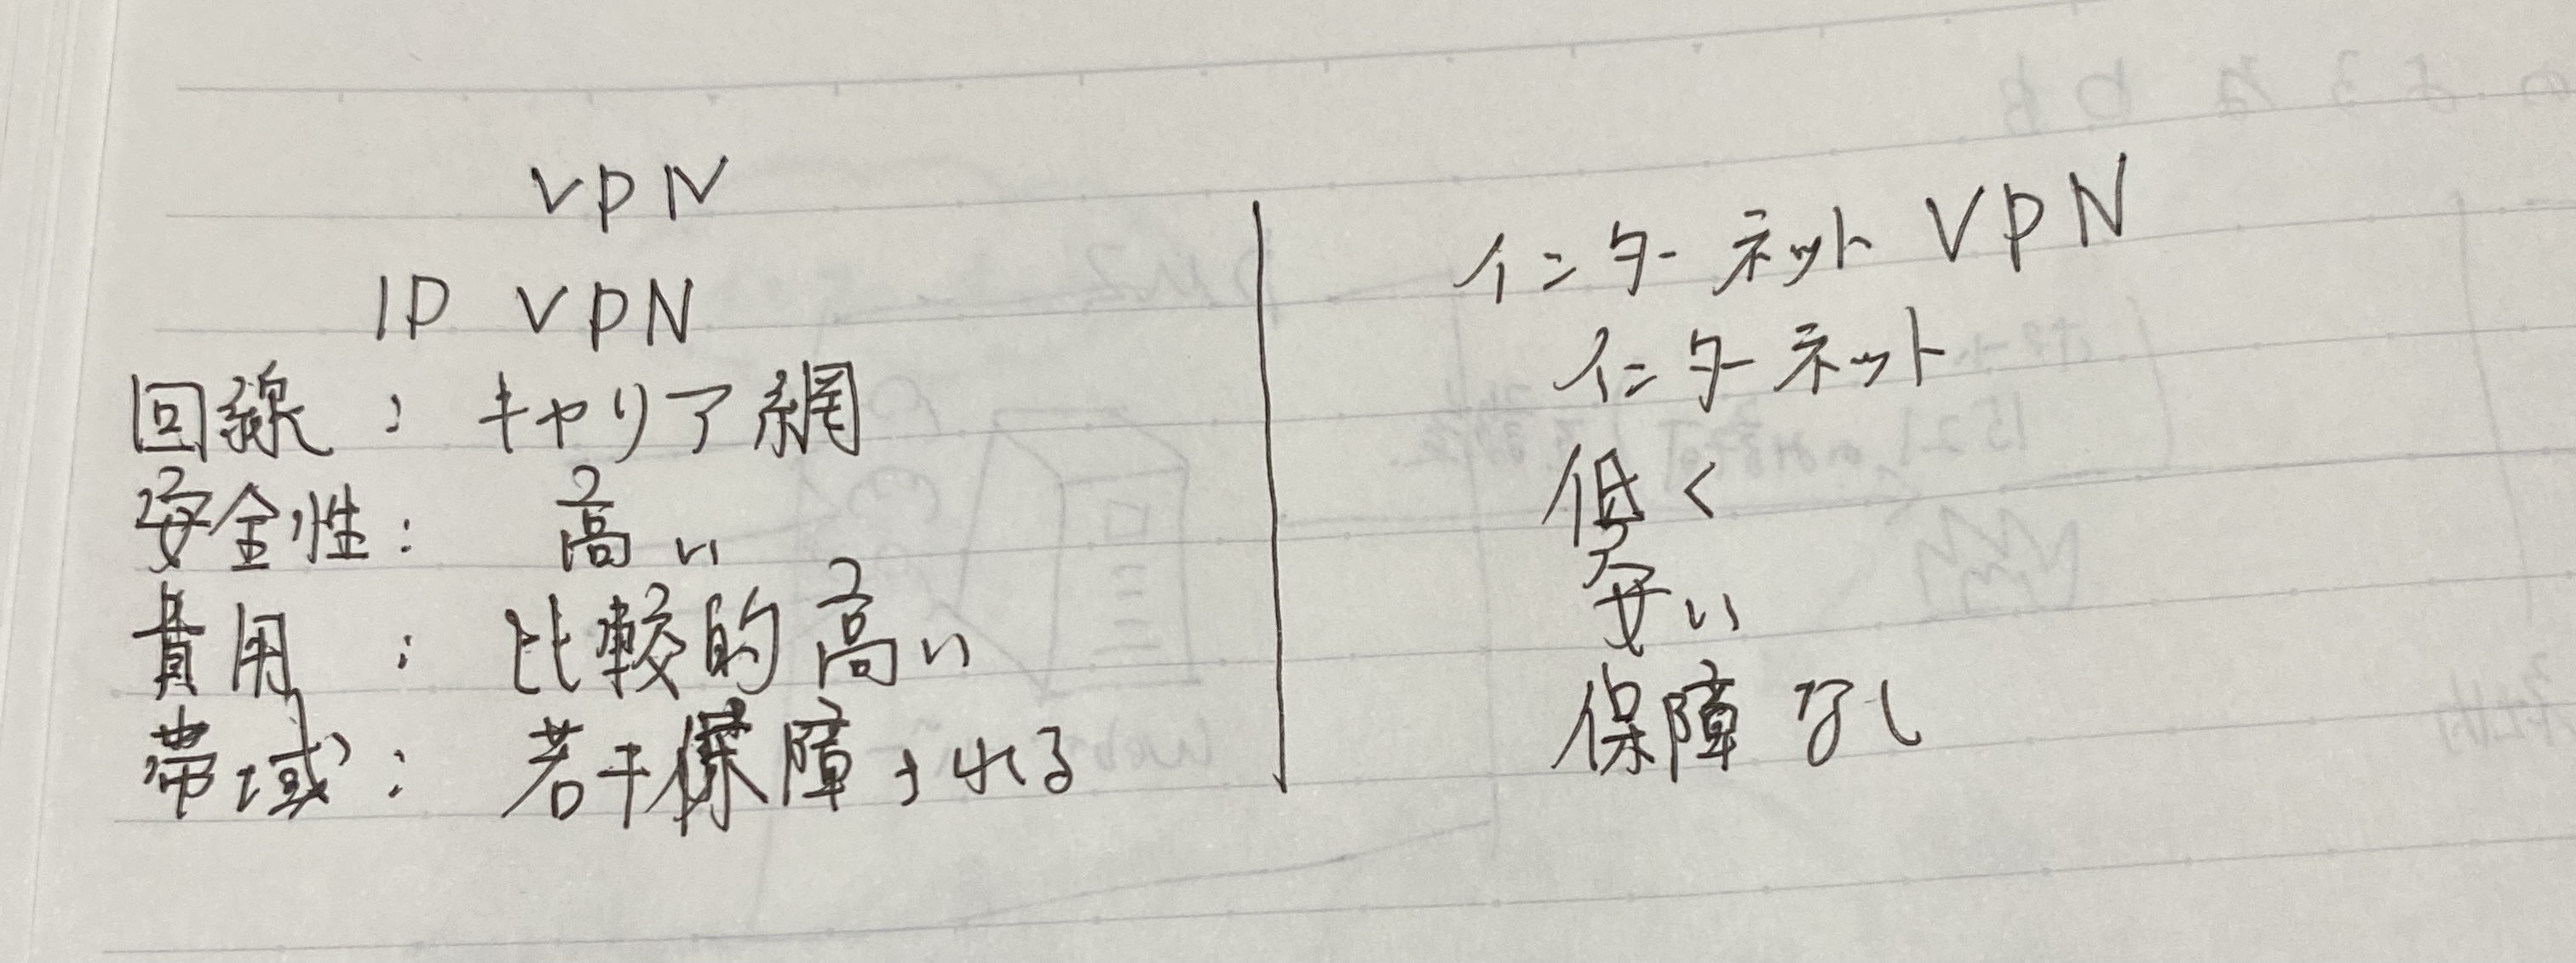 VPN
IP VPN
回線：キャリア網
安全性：高い
費用：比較的高い
帯域：若干保障される
インターネットVPN
インターネット
低く
安い
保障なし